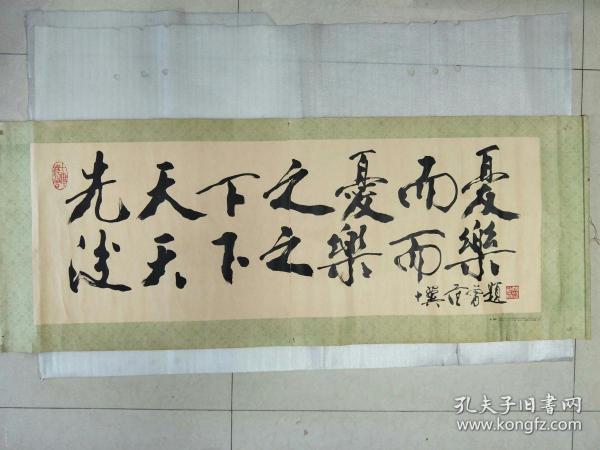 先天下之憂而憂
後天下之樂而樂
十翼范曾題
孔夫子旧书网
www.kongfz.com